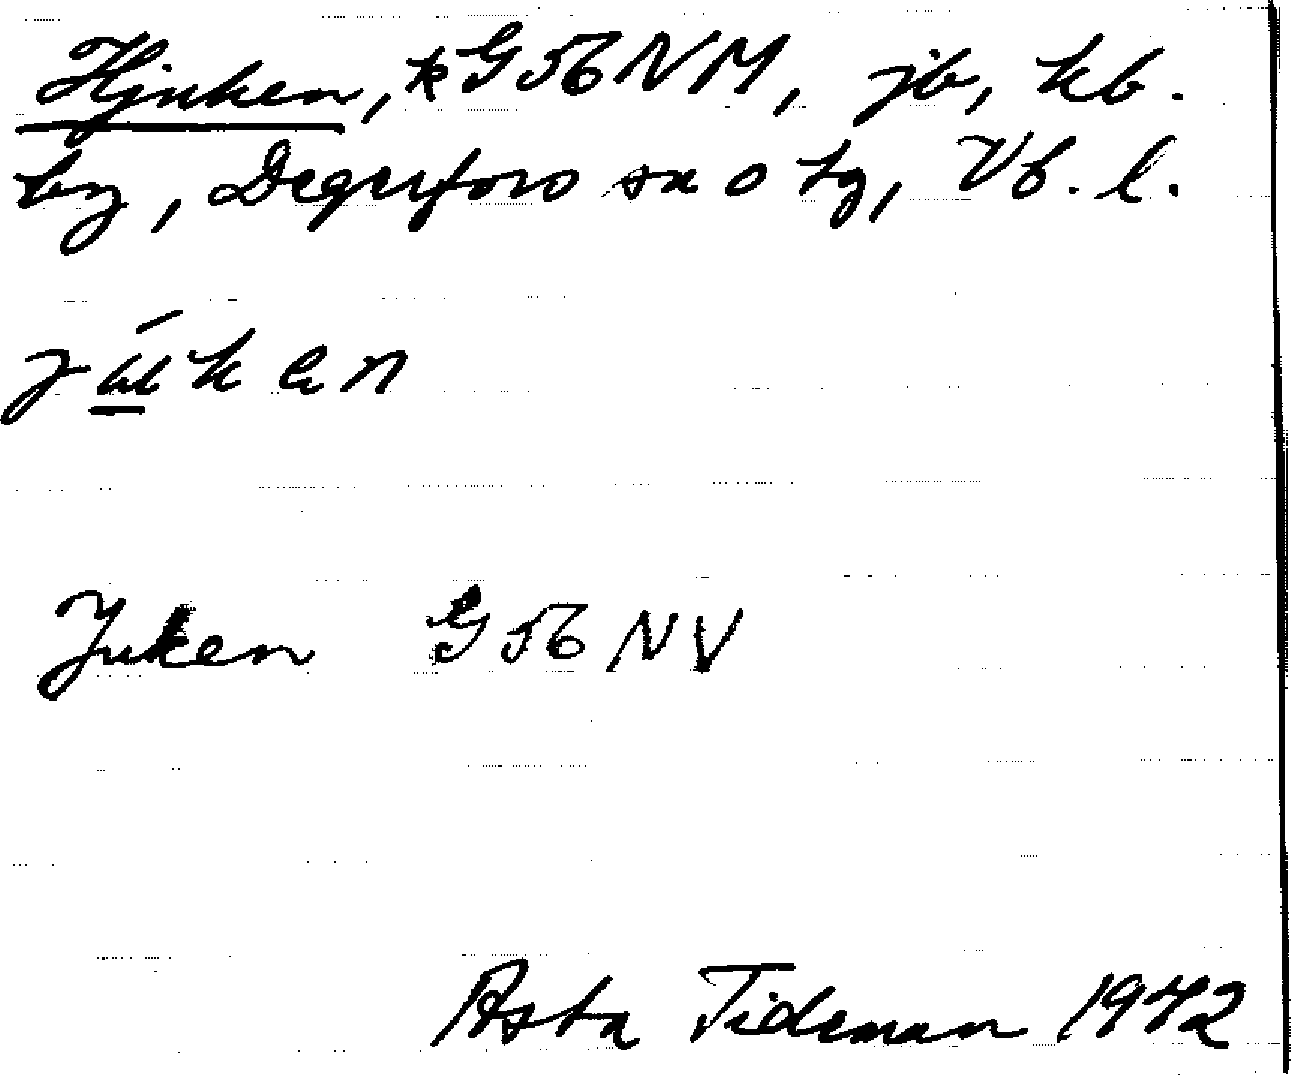 Hjuken, k G 56 NM, jb, kb.
by, Degerfors sn o tg, Vb. l.
júken
Juken G 56 NV
Asta Tideman 1942